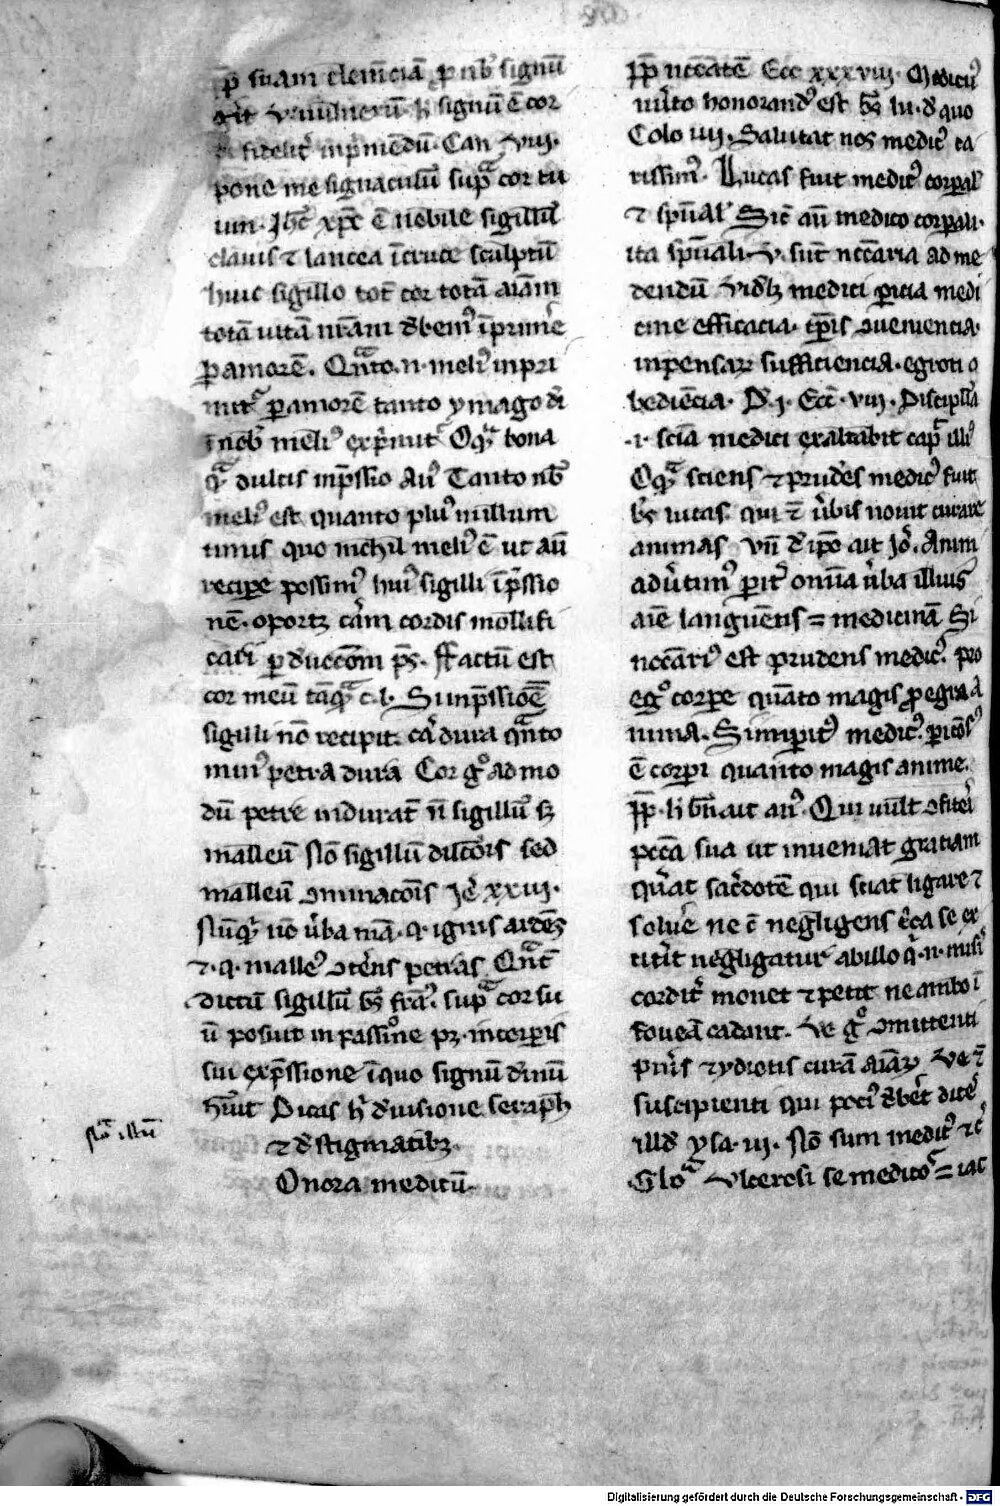 ꝑ suam clemēciā ꝓ nob̄ signū
signū ē cor
fidelit᷑ inp̄mēdū. Can viij.
pone me signaculū suꝑ cor tu
um. Jhc̄ xpc̄ ē nobile sigillū
clauis ⁊ lancea ī cruce sculptū
huic sigillo totū cor totā aīam
totā uitā nr̄am debem᷒ īprim̄e
ꝑ amorē. Qn̄to .n. meli᷒ inpri
mit᷑ ꝑ amorē tanto ymago di
ī nob̄ meli᷒ exp̄mit᷑ Oqᷓ bona
qᷓ dulcis inp̄ssio Au᷒ Tanto nob̄
meli᷒ est quanto plu᷒ in illum
imus quo nichil meli᷒ ē ut aū
recipe possim᷒ hui᷒ sigilli īp̄ssio
nē. oportꝫ carnē cordis mollifi
cari ꝑ deuocōm ps̄. Factū est
cor meū tāqᷓ c. l. Si inp̄ssioē
sigilli nō recipit cera dura qᷓnto
min᷒ petra dura Cor gᵒ ad mo
dū petre induratū nō sigillū sꝫ
malleū Nō sigillū dil̄cōis sed
malleū ↄminacōis Je᷑ xxiij.
Nūquid nō u᷑ba mea. q. ignis ardēs
⁊ .q. malle᷒ ↄterēns petras Qn̄t
dictū sigillū bs̄ fran᷒. suꝑ cor su
ū posuit in passione pꝫ in corꝑis
sui exp̄ssione ī quo signū diuinū
h̄uit Dicas hic de uisione seraph
⁊ de stigmatibꝫ.
Onora medicū.
Nō illū
ꝓp̄ necc̄atē Ecc xxxviij. Medicū
merito honorand᷒ est bs̄ lu. de quo
Colo iiij. Salutat nos medic᷒ ca
rissim᷒. Lucas fuit medic᷒ corpal᷑
⁊ sp̄ual᷑ Sic᷑ aū medico corꝑali.
ita sp̄uali v. sunt necc̄aria ad me
dendū videlꝫ medici ꝑicia medi
cine efficacia. tꝑis ↄueniencia.
inpensarꝫ sufficiencia. egroti o
bediēcia. De .j. Ecc̄. viij. Disciplīa
.i. sciā medici exaltabit caput illi᷒
Oqᷓ sciens ⁊ prudēs medic᷒ fuit
bs̄ lucas. qui ī u᷑bis nouit curare
animas Vn̄ de ip̄o ait Jo᷑. Anim
aduertim᷒ parit᷑ omīa u᷑ba illius
aīe languētis = medicinā Si
necc̄ari᷒ est prudens medic᷒. pro
egᵒ corpe quāto magis ꝓ egra a
nima. Si inꝑit᷒ medic᷒. ꝑicōs᷒
ē corpi quanto magis anime.
ꝓp̄. h̄ bn̄ ait au᷒. Qui uult ↄfiteri
pcc̄a sua ut inueniat gratiam
querat sac̄dotē qui sciat ligare ⁊
soluere ne cū negligens circa se ex
titerit negligatur ab illo q̄ .n. misi
cordit᷑ monet ⁊ petit ne ambo ī
foueā cadant. Ve gᵒ ↄmittenti
pueris ⁊ ydiotis curā aīarꝫ Ve ⁊
suscipienti qui poci᷒ deberet dice᷑
illud ysa. iij. Nō sum medic᷒ ⁊c̄
Glo᷑ Vlcerosi se medico᷑ = iac
Digitalisierung gefördert durch die Deutsche Forschungsgemeinschaft - DFG